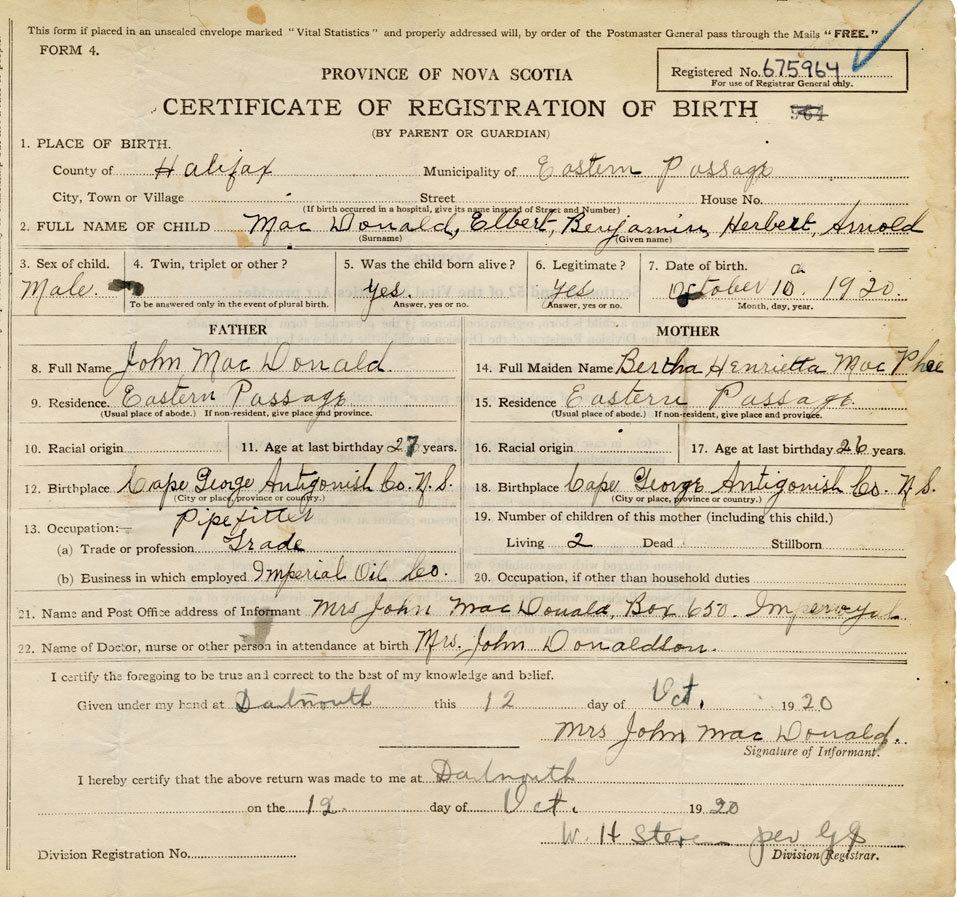 This form if placed in an unsealed envelope marked "Vital Statistics" and properly addressed will, by order of the Postmaster General pass through the Mails "FREE."
FORM 4.
Registered No. 675964
For use of Registrar General only.
PROVINCE OF NOVA SCOTIA
CERTIFICATE OF REGISTRATION OF BIRTH 964
(BY PARENT OR GUARDIAN)
1. PLACE OF BIRTH.
County of Halifax Municipality of Eastern Passage
City, Town or Village Street House No.
(If birth occurred in a hospital, give its name instead of Street and Number)
2. FULL NAME OF CHILD Mac Donald, Elbert, Benjamin, Herbert, Arnold
(Surname) (Given name)
3. Sex of child. 4. Twin, triplet or other? 5. Was the child born alive? 6. Legitimate? 7. Date of birth.
Male. yes. yes October 10th 1920.
To be answered only in the event of plural birth. Answer, yes or no. Answer, yes or no. Month, day, year.
FATHER MOTHER
8. Full Name John Mac Donald. 14. Full Maiden Name Bertha Henrietta Mac Phee
9. Residence. Eastern Passage 15. Residence Eastern Passage
(Usual place of abode.) If non-resident, give place and province. (Usual place of abode.) If non-resident, give place and province.
10. Racial origin 11. Age at last birthday 27 years. 16. Racial origin 17. Age at last birthday 26 years.
12. Birthplace Cape George Antigonish Co. N.S. 18. Birthplace Cape George Antigonish Co. N.S.
(City or place, province or country.) (City or place, province or country.)
13. Occupation:— Pipefitter 19. Number of children of this mother (including this child.)
(a) Trade or profession Trade Living 2 Dead Stillborn
(b) Business in which employed Imperial Oil Co. 20. Occupation, if other than household duties
21. Name and Post Office address of Informant Mrs John Mac Donald, Box 650. Imperoyal
22. Name of Doctor, nurse or other person in attendance at birth Mrs. John Donaldson.
I certify the foregoing to be true and correct to the best of my knowledge and belief.
Given under my hand at Dartmouth this 12 day of Oct. 1920
Mrs John Mac Donald.
Signature of Informant.
I hereby certify that the above return was made to me at Dartmouth
on the 12 day of Oct. 1920
W. H Steve per G J
Division Registrar.
Division Registration No.